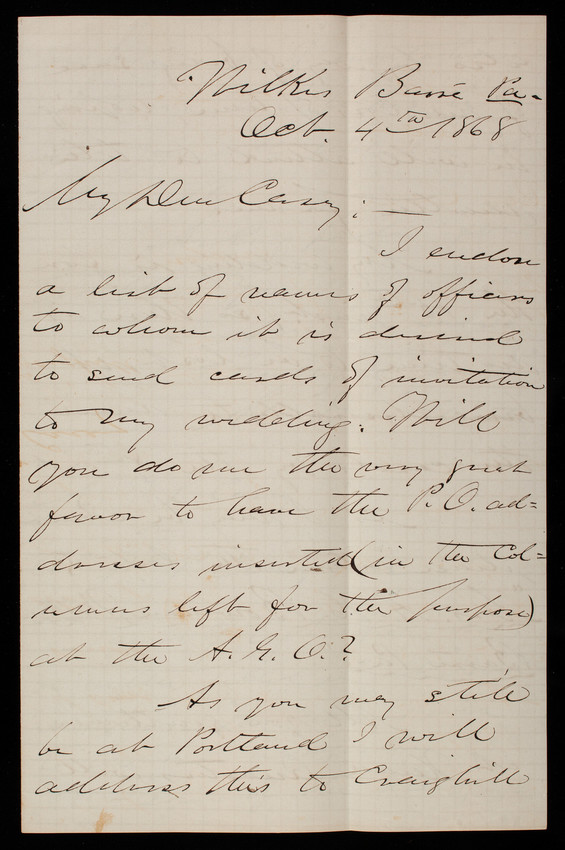 Wilkes Barré Pa-
Oct. 4th 1868
My Dear Casey:—
I enclose
a list of names of officers
to whom it is desired
to send cards of invitation
to my wedding. Will
you do me the very great
favor to have the P.O. ad=
dresses inserted (in the Col=
umns left for the purpose)
at the A.G.O.?
As you may still
be at Portland I will
address this to Craighill